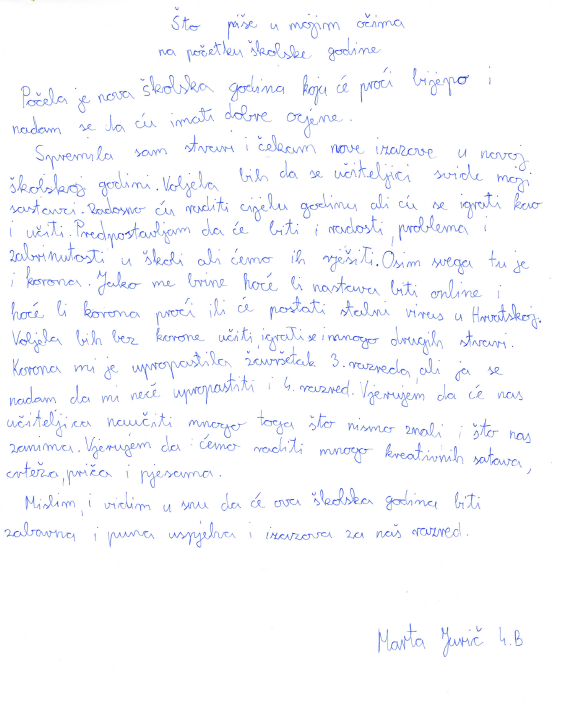 Što piše u mojim očima
na početku školske godine
Počela je nova školska godina koja će proći lijepo i
nadam se da ću imati dobre ocjene.
Spremila sam stvari i čekam nove izazove u novoj
školskoj godini. Voljela bih da se učiteljici svide moji
sastavci. Radosno ću raditi cijelu godinu ali ću se igrati kao
i učiti. Predpostavljam da će biti i radosti, problema i
zabrinutosti u školi ali ćemo ih rješiti. Osim svega tu je
i korona. Jako me brine hoće li nastava biti online i
hoće li korona proći ili će postati stalni virus u Hrvatskoj.
Voljela bih bez korone učiti, igrati se i mnogo drugih stvari.
Korona mi je upropastila završetak 3. razreda, ali ja se
nadam da mi neće upropastiti i 4. razred. Vjerujem da će nas
učiteljica naučiti mnogo toga što nismo znali i što nas
zanima. Vjerujem da ćemo raditi mnogo kreativnih satava,
crteža, priča i pjesama.
Mislim, i vidim u snu da će ova školska godina biti
zabavna i puna uspjeha i izazova za naš razred.
Marta Jurič 4.B